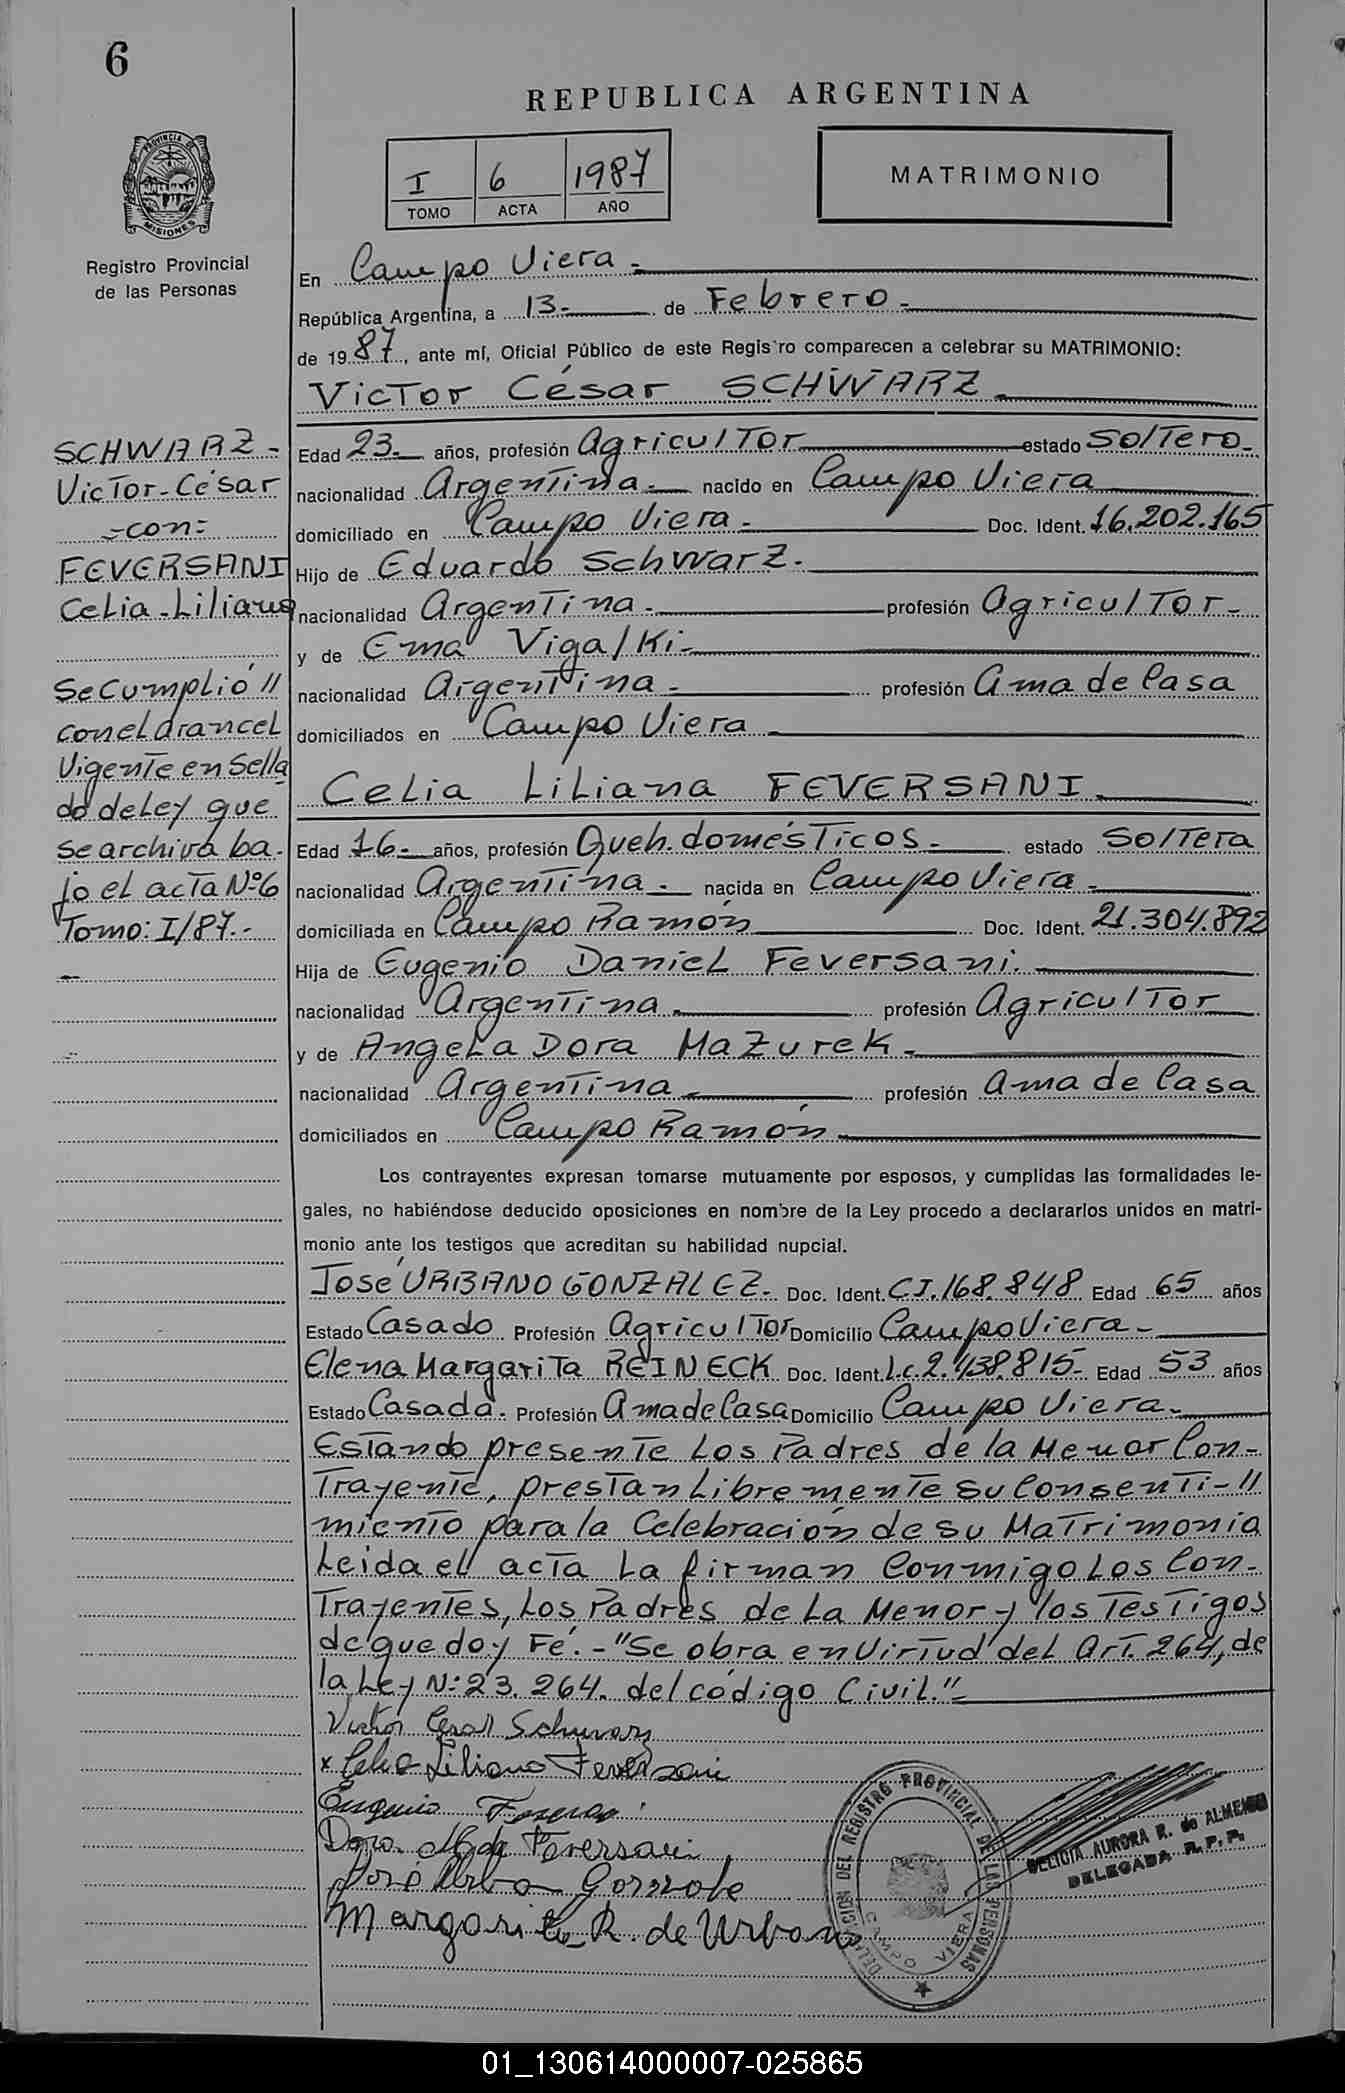 6
REPUBLICA ARGENTINA
I 6 1987
TOMO ACTA AÑO
MATRIMONIO
PROVINCIA DE
MISIONES
Registro Provincial
de las Personas
En Campo Viera.-
República Argentina, a 13.- de Febrero.-
de 1987, ante mí, Oficial Público de este Registro comparecen a celebrar su MATRIMONIO:
Victor César SCHWARZ.-
Edad 23.- años, profesión Agricultor estado Soltero.-
nacionalidad Argentina.- nacido en Campo Viera
domiciliado en Campo Viera.- Doc. Ident. 16.202.165
Hijo de Eduardo Schwarz.-
nacionalidad Argentina.- profesión Agricultor.-
y de Ema Vigalki.-
nacionalidad Argentina.- profesión Ama de Casa
domiciliados en Campo Viera.-
Celia Liliana FEVERSANI.-
Edad 16.- años, profesión Queh. domésticos.- estado Soltera
nacionalidad Argentina.- nacida en Campo Viera.-
domiciliada en Campo Ramón Doc. Ident. 21.304.892
Hija de Eugenio Daniel Feversani.-
nacionalidad Argentina.- profesión Agricultor
y de Angela Dora Mazurek.-
nacionalidad Argentina.- profesión Ama de Casa
domiciliados en Campo Ramón
Los contrayentes expresan tomarse mutuamente por esposos, y cumplidas las formalidades le-
gales, no habiéndose deducido oposiciones en nombre de la Ley procedo a declararlos unidos en matri-
monio ante los testigos que acreditan su habilidad nupcial.
José URBANO GONZALEZ.- Doc. Ident. C.I. 168.848 Edad 65 años
Estado Casado Profesión Agricultor Domicilio Campo Viera.-
Elena Margarita REINECK Doc. Ident. L.c. 2.438.815.- Edad 53 años
Estado Casada.- Profesión Ama de Casa Domicilio Campo Viera.-
Estando presente Los Padres de la Menor Con-
Trayente, prestan Libremente su Consenti-//
miento para la Celebración de su Matrimonio
Leida el acta La firman Conmigo Los Con-
Trayentes, Los Padres de La Menor y los Testigos
de que doy Fé.- "Se obra en Virtud del Art. 264, de
la Ley N: 23.264. del código Civil."-
Victor Cesar Schwarz
x Celia Liliana Feversani
Eugenio
Dora Feversani
José Urbano Gonzale
Margarita R. de Urbano
SCHWARZ-
Victor-César
=con=
FEVERSANI
Celia-Liliana
Se Cumplió //
con el Arancel
Vigente en Sella
do de Ley que
se archiva ba-
jo el acta Nº 6
Tomo: I/87.-
DELEGACION DEL REGISTRO PROVINCIAL DE LAS PERSONAS
CAMPO VIERA
DELICIA AURORA R. de ALMEIDA
DELEGADA R.P.P.
01_130614000007-025865